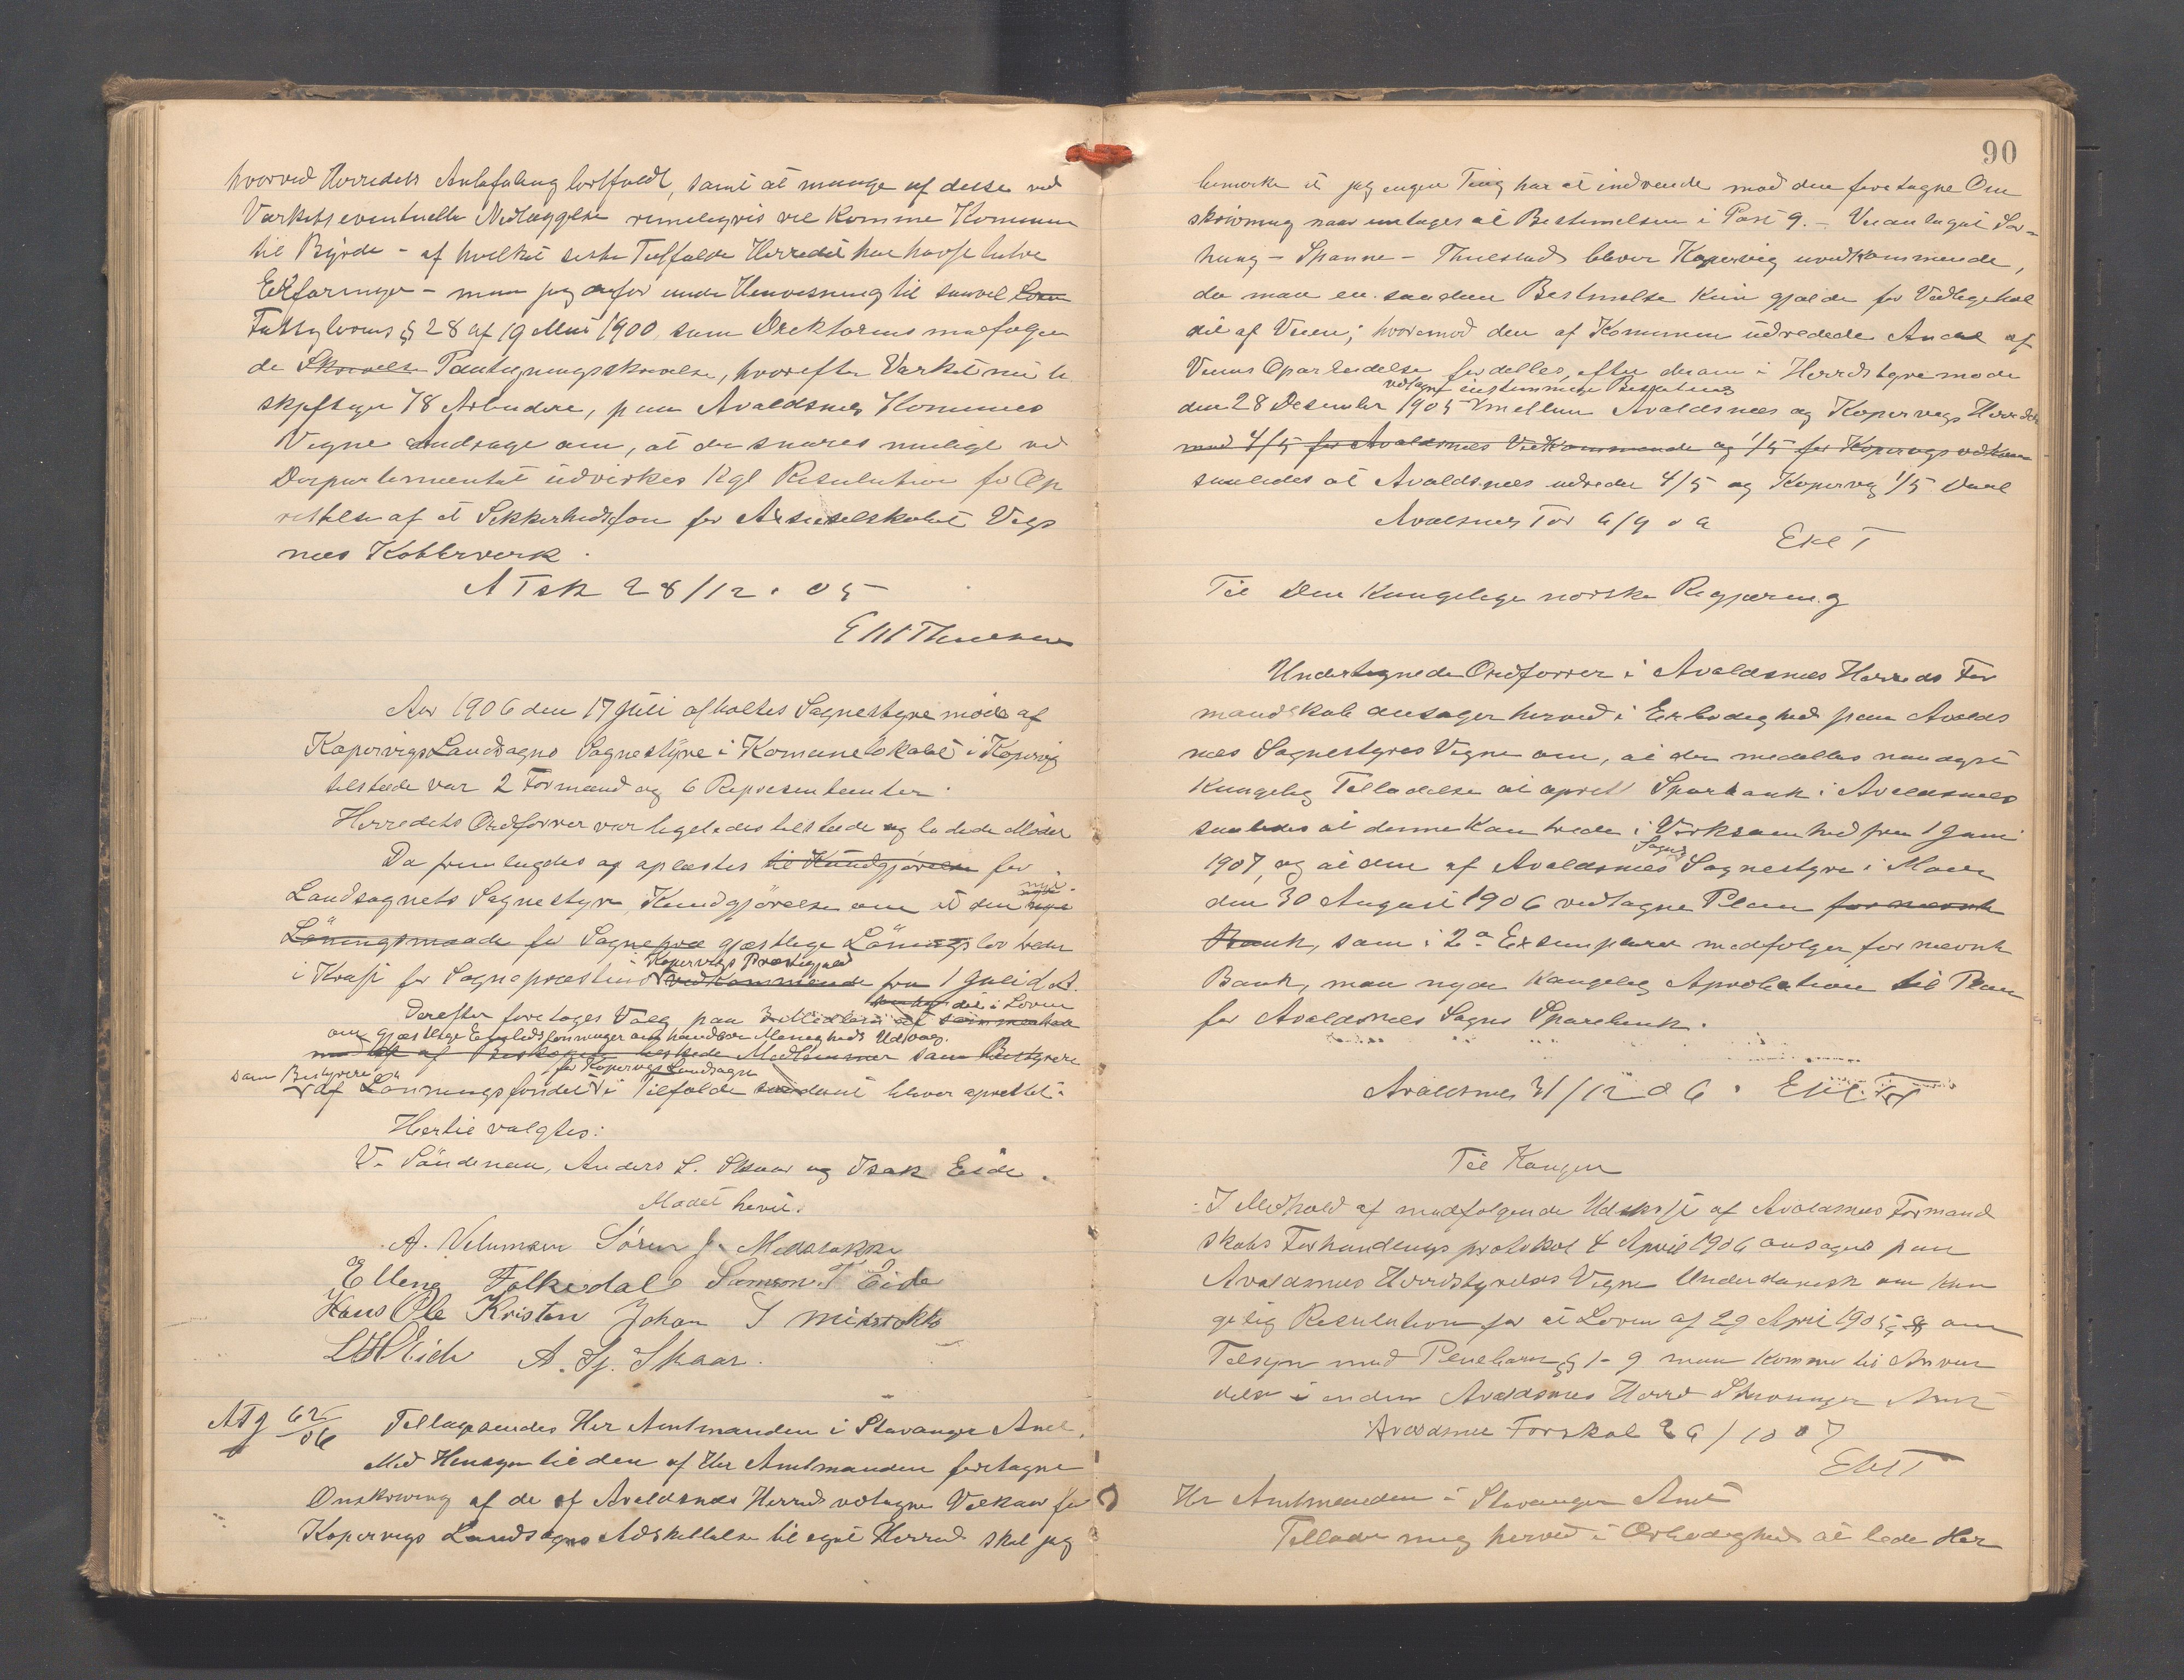 hvorved Herredets Anbefaling bortfaldt, samt at mange af disse ved
Værkets eventuelle Nedlæggelse rimeligvis vil komme Kommunen
til Byrde - af hvilket sidste Tilfælde Herredet har havt bitre
Erfaringer - maa jeg derfor under Henvisning til saavel Loven
Fattiglovens § 28 af 19 Mai 1900, som Direktørens medfølgen
de Skrivelse Paategningsskrivelse, hvorefter Værket nu be
skjeftiger 78 Arbeidere, paa Avaldsnes Kommunes
Vegne andrage om, at der snarest muligt ved
Departementet udvirkes Kgl Resolution for Op
rettelse af et Sikkerhedsfon for Aktieselskabet Vigs
næs Kobberverk.
A Tsk 28/12. 05
E M Thuesen
Aar 1906 den 17 Juli afholtes Sognestyremøde af
Kopervigs Landsogns Sognestyre i Komunelokalet i Kopervig
tilstede var 2 Formænd og 6 Representanter.
Herredets Ordfører var ligeledes tilstede og ledede Mødet
Da fremlagdes og oplæstes til Kundgjørelse for
Landsognets Sognestyre Kundgjørelse om at den nye
Lønningsmaade for Sognepræ gjestlige Lønningslov træder
i Kraft for Sognepræsten i Kopervigs Præstegjæld vedkommende fra 1 Juli d. A.
Derefter foretages Valg paa 3 Medlem af det i Loven
om gjestlige Embedsforretninger omhandlede Menigheds Udvalg.
af Biskopen beskikkede Medlemmer som Bestyrere
som Bestyrere af Lønningsfondet for Kopervigs Landsogn i Tilfælde saadant bliver oprettet.
Hertil valgtes:
V. Søndenaa, Anders S. Skaar og Isak Eide.
Mødet hævet.
A. Velumsen Søren J. Medstokke
Elling Falkedal Samson T Eide
Hans Ole Kristen Johan I Midstokke
L H Eide A. Sj. Skaar.
ATg 62/06 Tilbagesendes Hr Amtmanden i Stavanger Amt.
Med Hensyn til den af Hr Amtmanden foretagne
Omskrivning af de af Avaldsnes Herred vedtagne Vilkaar for
Kopervigs Landsogns Adskillelse til eget Herred skal jeg
90
bemerke at jeg ingen Ting har at indvende mod den foretagne Om
skrivning naar undtages at Bestemelsen i Post 9. - Veianlæget Sør=
haug - Spanne - Thuestad bliver Kopervig uvedkommende,
da maa en saadan Bestmelse kun gjælde for Vedligehol
det af Veien; hvorimod den af Komunen udredede Andel af
Veiens Oparbeidelse fordelles, efter deran i Herredstyremøde
den 28 Desember 1905 vedtagne enstemmige Beslutning mellem Avaldsnes og Kopervigs Herreder
med 4/5 for Avaldsnes Vedkommende og 1/5 for Kopervigs vedkom
saaledes at Avaldsnes udreder 4/5 og Kopervig 1/5 Deel
Avalsnes For 6/9 06
EMT
Til Den Kongelige norske Regjering
Undertegnede Ordfører i Avaldsnes Herreds For
mandskab ansøger herved i Erbødighed paa Avalds
næs Sognestyres Vegne om, at der meddeles naadigst
Kongelig Tilladelse at oprett Sparbank i Avaldsnes
saaledes at denne kan træde i Virksomhed fra 1 Juni
1907, og at den af Avaldsnes Sogns Sognestyre i Møde
den 30 August 1906 vedtagne Plan for nævnte
Bank, som i 2 Exemplarer medfølger for nævnt
Bank, maa nyde Kongelig Aprobation til Plan
for Avaldsnes Sogns Sparebank.
Avaldsnes 31/12 06. EMT
Til Kongen
I Medhold af medfølgende Udskrift af Avaldsnes Formand
skabs Forhandlingsprotokol 4 April 1906 ansøges paa
Avaldsnes Herredstyrelses Vegne Underdanigst om kon
gelig Resolution for at Loven af 29 April 1905 om
Tilsyn med Pleiebørn § 1-9 maa komme til Anven
delse i endre Avaldsnes Herred Stavanger Amt
Avaldsnes Forskab 26/10 07
EMT
Hr Amtmanden i Stavanger Amt
Tillader mig herved i Ærbødighed at bede Her